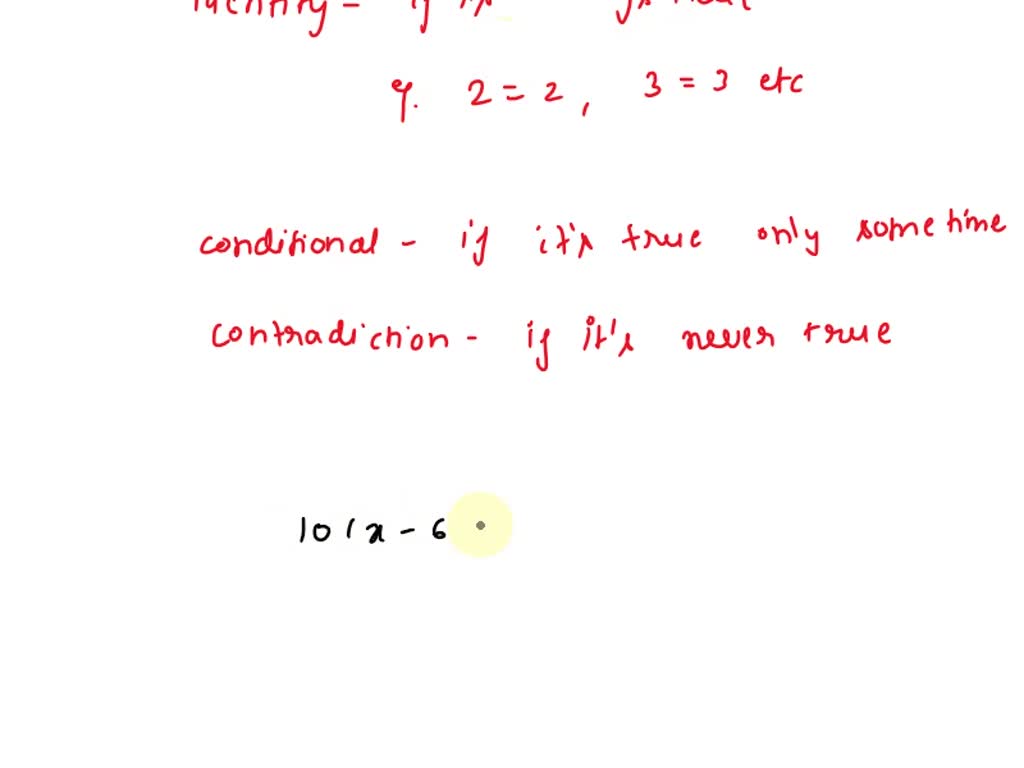 identity - if it's
eg. 2 = 2, 3 = 3 etc
conditional - if it's true only some time
contradiction - if it's never true
10 ( x - 6